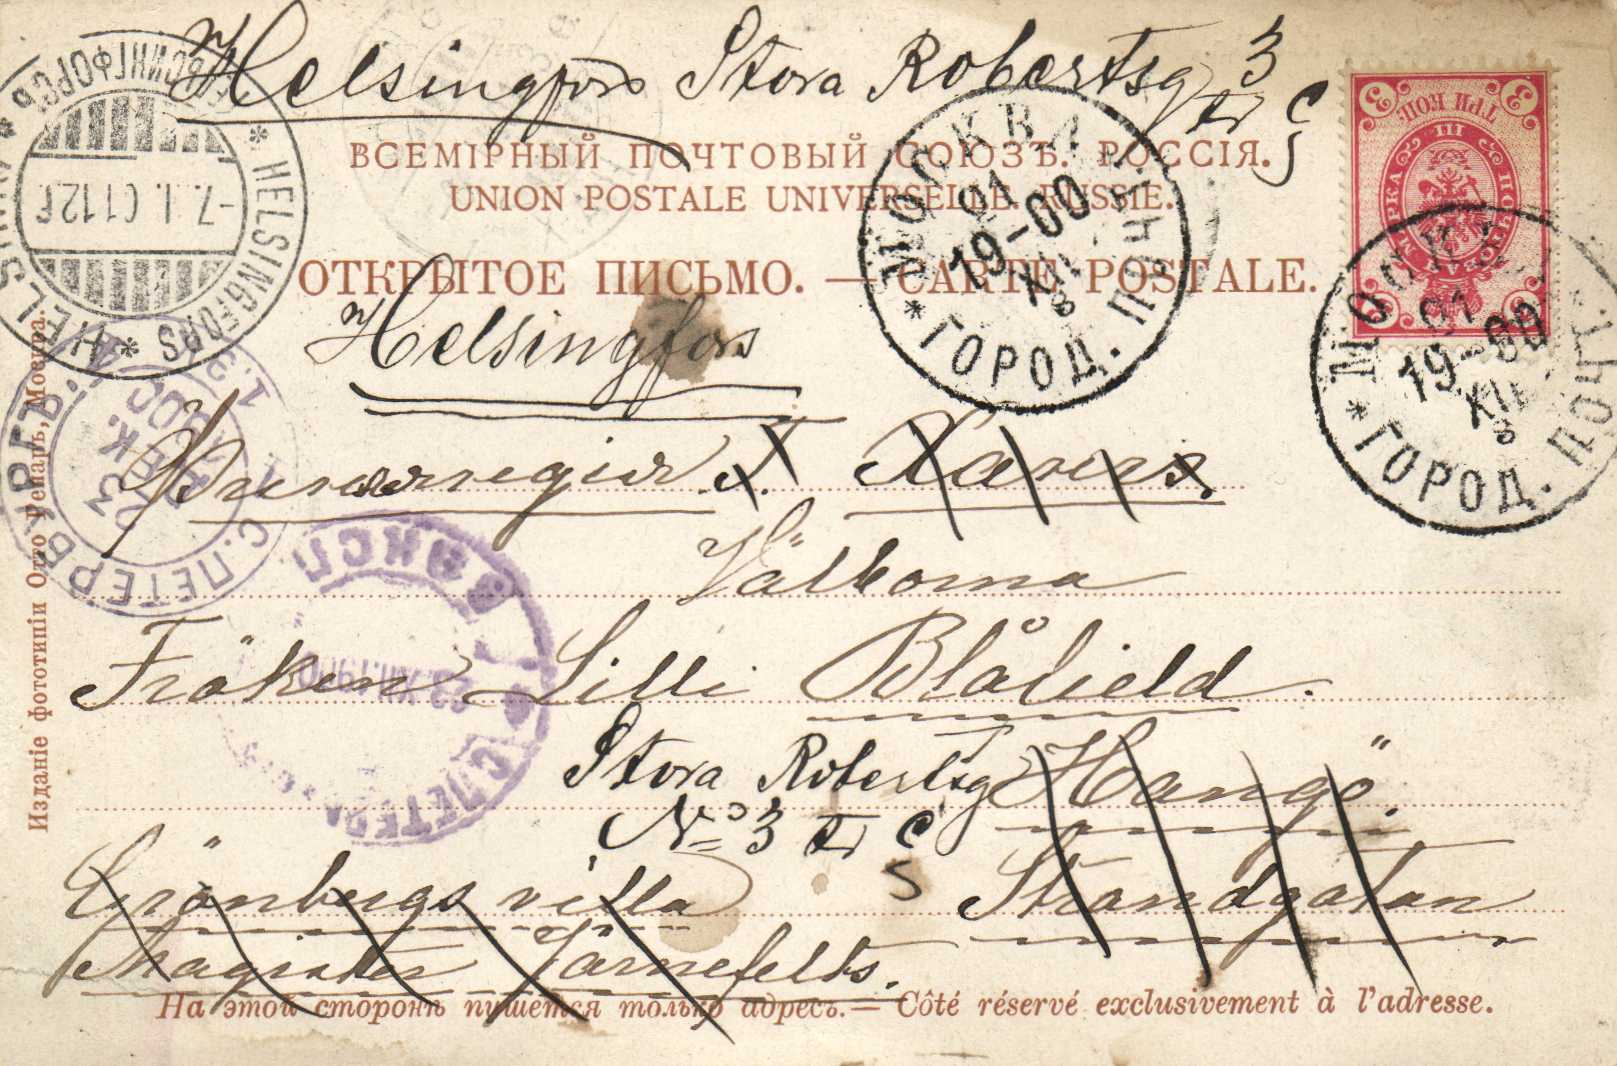 Helsingfors Stora Robertsg 3
ВСЕМІРНЫЙ ПОЧТОВЫЙ СОЮЗЪ. РОССІЯ.
UNION POSTALE UNIVERSELLE. RUSSIE.
ОТКРЫТОЕ ПИСЬМО. — CARTE POSTALE.
3 ТРИ КОП. 3
ПОЧТОВАЯ МАРКА
МОСКВА
19-00
XII
8
* ГОРОД. ПОЧТ.
МОСКВА
19-00
XII
8
* ГОРОД. ПОЧТ. *
* HELSINGFORS *
ГЕЛЬСИНГФОРСЪ
-7.1.01 12F
Helsingfors
С. ПЕТЕРБУРГЪ
3 ДЕК. 1900
Välborna
Fröken Lilli Blåfield.
Stora Robertsg Hangö.
No 3
Grönbergs villa Strandgatan
Magister Järnefelts.
На этой сторонѣ пишется только адресъ. — Côté réservé exclusivement à l'adresse.
Изданіе фототипіи Отто Ренаръ, Москва.